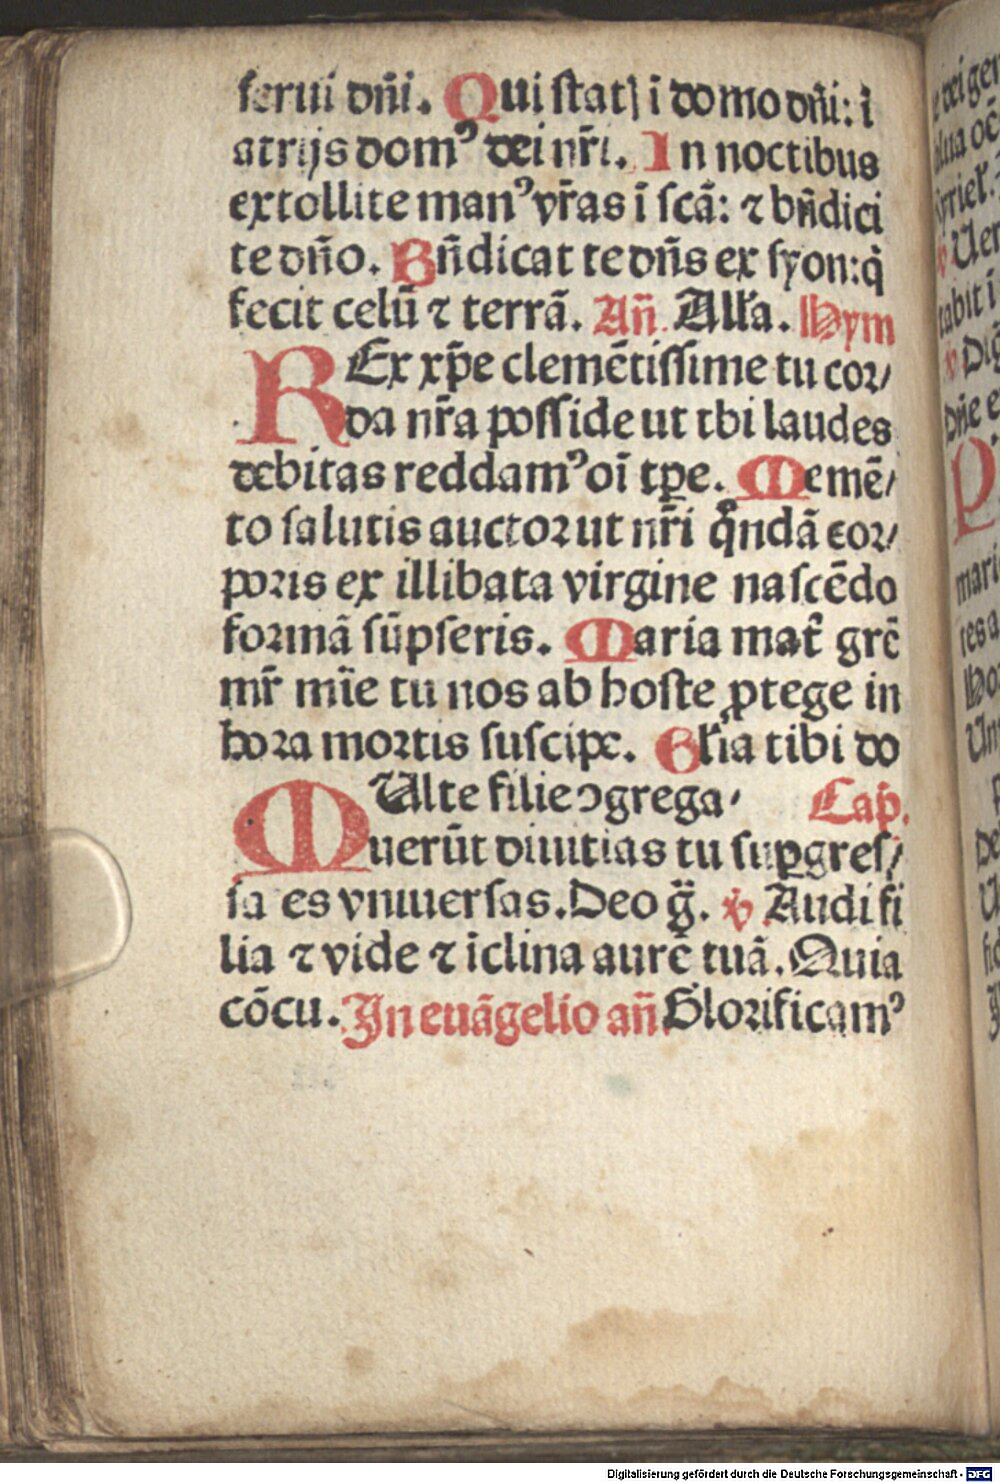 ſerui dn̄i. Qui ſtatꝭ ī domo dn̄i: ī
atrijs domꝰ dei nr̄i. In noctibus
extollite manꝰ vr̄as ī ſcā: ⁊ bn̄dici
te dn̄o. Bn̄dicat te dn̄s ex ſyon: q̇
fecit celū ⁊ terrā. Añ. Alľa. Hym
REx xp̄e clemētiſſime tu cor/
da nr̄a poſſide ut tbi laudes
debitas reddamꝰ oī tp̄e. Memē/
to ſalutis auctor ut nr̄i q̊ndā cor/
poris ex illibata virgine naſcēdo
formā ſūpſeris. Maria mat̄ grē
mr̄ mīe tu nos ab hoſte ꝓtege in
hora mortis ſuſcipe. Gľia tibi do
MUlte filie ↄgrega/ Cap̄.
uerūt diuitias tu ſuꝑgreſ/
ſa es vniuerſas. Deo g̈. ℣. Audi fi
lia ⁊ vide ⁊ īclina aurē tuā. Quia
cōcu. In euāgelio añ. Glorificamꝰ
Digitalisierung gefördert durch die Deutsche Forschungsgemeinschaft - DFG